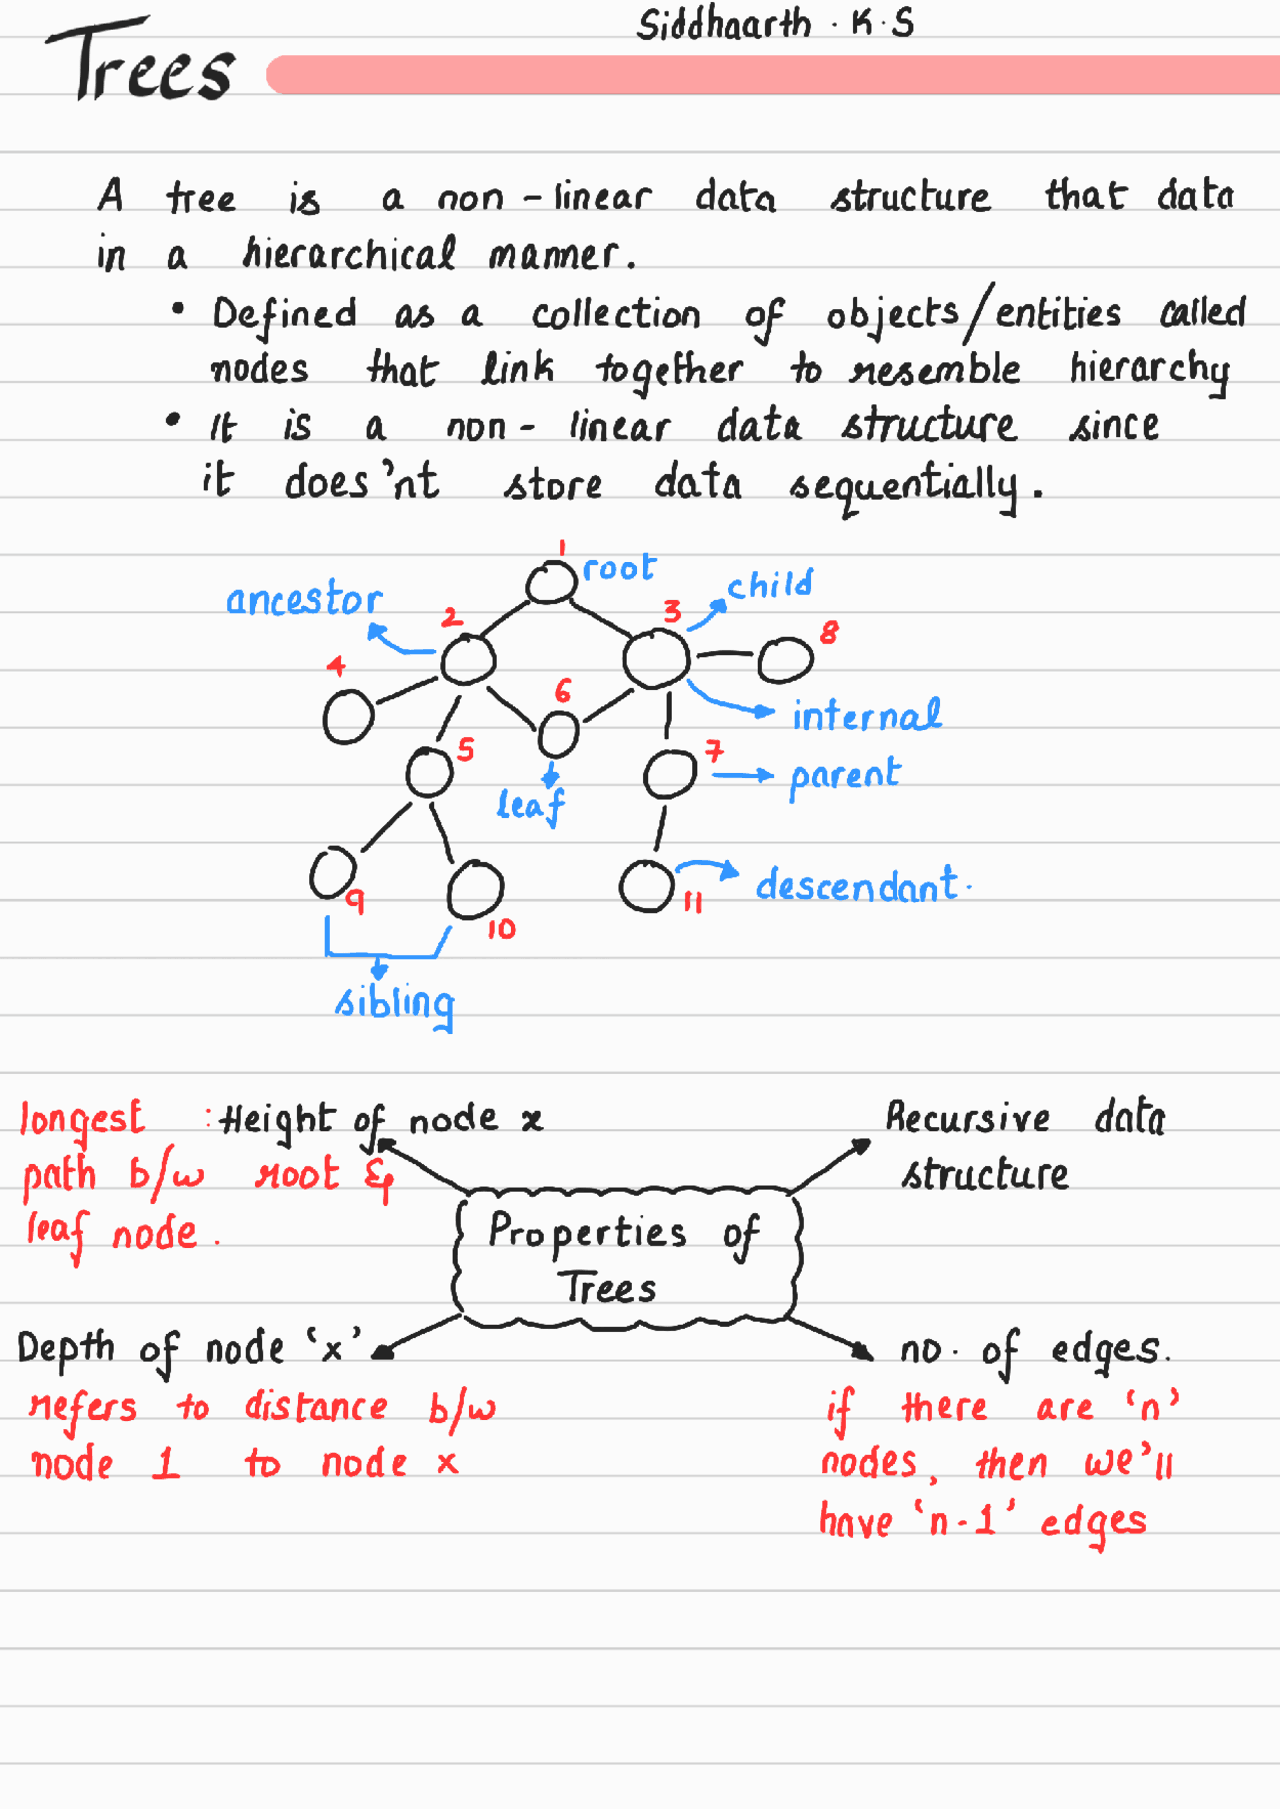 Siddhaarth . K . S
Trees
A tree is a non-linear data structure that data
in a hierarchical manner.
• Defined as a collection of objects/entities called
nodes that link together to resemble hierarchy
• It is a non-linear data structure since
it does'nt store data sequentially.
1
root
child
ancestor
2
3
8
4
6
internal
5
7
parent
leaf
descendant.
9
11
10
sibling
longest : Height of node x
path b/w root &
leaf node.
Recursive data
structure
Properties of
Trees
Depth of node 'x'
refers to distance b/w
node 1 to node x
no. of edges.
if there are 'n'
nodes, then we'll
have 'n-1' edges